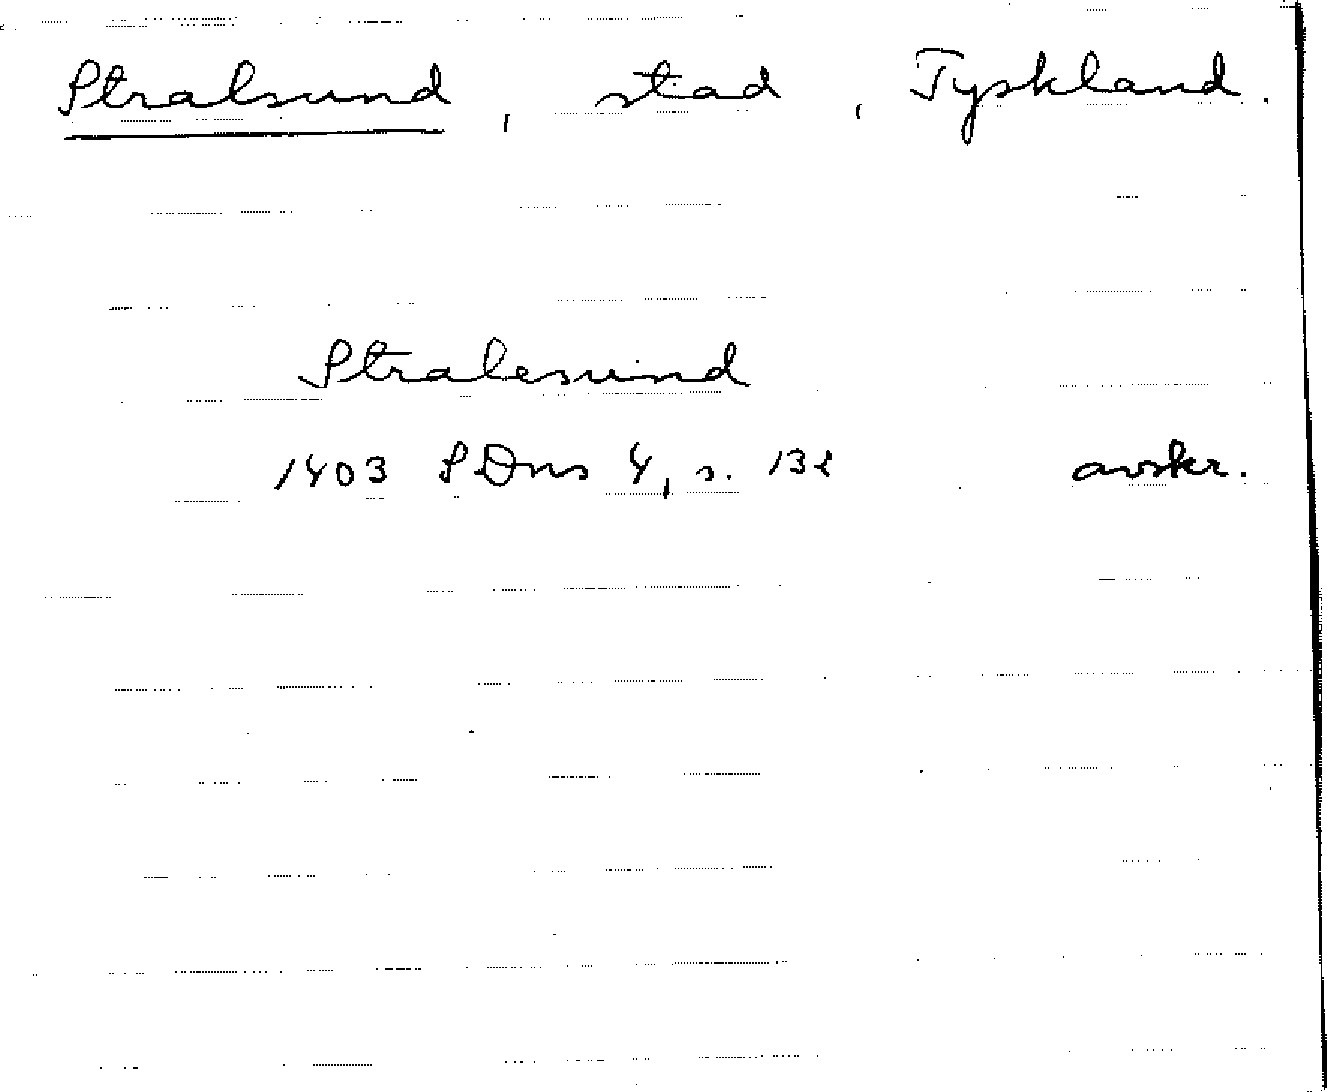 Stralsund, stad, Tyskland.
Stralesund
1403 SDns 4, s. 132 avskr.